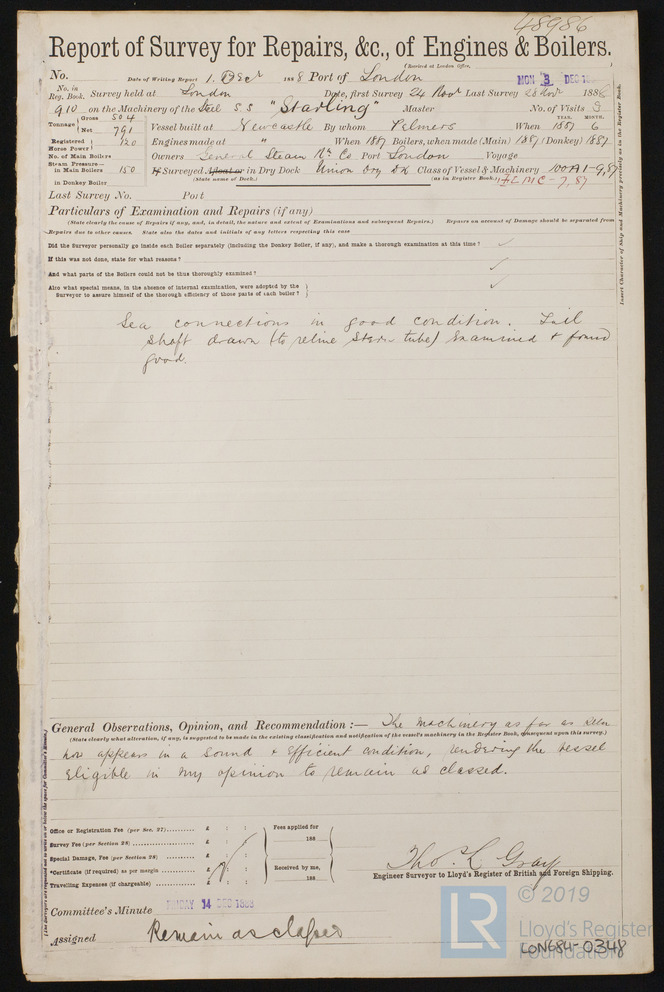 48986
Report of Survey for Repairs, &c., of Engines & Boilers.
(Received at London Office,
No. Date of Writing Report 1. Decr 1888 Port of London MON 3 DEC 18
No. in Reg. Book. Survey held at London Date, first Survey 24 Novr Last Survey 28 Novr 1888
910 on the Machinery of the Steel S.S "Starling" Master No. of Visits 3
Tonnage Gross 504 Net 791 Vessel built at Newcastle By whom Palmers When YEAR. 1887 MONTH. 6
Registered Horse Power 120 Engines made at " When 1887 Boilers, when made (Main) 1887 (Donkey) 1887
No. of Main Boilers Owners General Steam Nn Co Port London Voyage
Steam Pressure— in Main Boilers 150 If Surveyed Afloat or in Dry Dock Union Dry Dk Class of Vessel & Machinery 100A1-9,87
in Donkey Boiler (State name of Dock.) (as in Register Book.) +LMC-7,87
Last Survey No. Port
Particulars of Examination and Repairs (if any)
(State clearly the cause of Repairs if any, and, in detail, the nature and extent of Examinations and subsequent Repairs.) Repairs on account of Damage should be separated from
Repairs due to other causes. State also the dates and initials of any letters respecting this case
Did the Surveyor personally go inside each Boiler separately (including the Donkey Boiler, if any), and make a thorough examination at this time?
If this was not done, state for what reasons?
And what parts of the Boilers could not be thus thoroughly examined?
Also what special means, in the absence of internal examination, were adopted by the
Surveyor to assure himself of the thorough efficiency of those parts of each boiler?
Sea connections in good condition. Tail
shaft drawn (to reline Stern tube) Examined & found
good.
Insert Character of Ship and Machinery precisely as in the Register Book.
General Observations, Opinion, and Recommendation :— The machinery as far as seen
(State clearly what alteration, if any, is suggested to be made in the existing classification and notification of the vessel's machinery in the Register Book, consequent upon this survey.)
now appears in a Sound & Efficient condition, rendering the vessel
Eligible in my opinion to remain as classed.
Office or Registration Fee (per Sec. 27) £ : :
Survey Fee (per Section 28) £ : :
Special Damage, Fee (per Section 28) £ : :
*Certificate (if required) as per margin £ : :
Travelling Expenses (if chargeable) £ : :
Fees applied for
188
Received by me,
188
Thos. L Gray
Engineer Surveyor to Lloyd's Register of British and Foreign Shipping.
Committee's Minute FRIDAY 14 DEC 1888
Assigned Remain as classed
© 2019
LR
Lloyd's Register
Foundation
LON684-0348